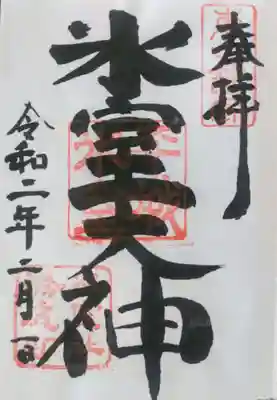 奉拝
氷室大神
令和二年二月一日